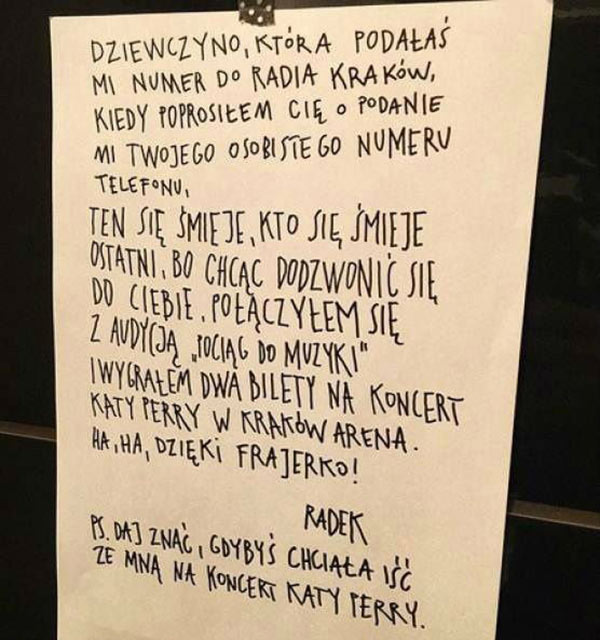 DZIEWCZYNO, KTÓRA PODAŁAŚ
MI NUMER DO RADIA KRAKÓW,
KIEDY POPROSIŁEM CIĘ O PODANIE
MI TWOJEGO OSOBISTEGO NUMERU
TELEFONU,
TEN SIĘ ŚMIEJE, KTO SIĘ ŚMIEJE
OSTATNI, BO CHCĄC DODZWONIĆ SIĘ
DO CIEBIE, POŁĄCZYŁEM SIĘ
Z AUDYCJĄ „POCIĄG DO MUZYKI"
I WYGRAŁEM DWA BILETY NA KONCERT
KATY PERRY W KRAKÓW ARENA.
HA, HA, DZIĘKI FRAJERKO!
RADEK
PS. DAJ ZNAĆ, GDYBYŚ CHCIAŁA IŚĆ
ZE MNĄ NA KONCERT KATY PERRY.